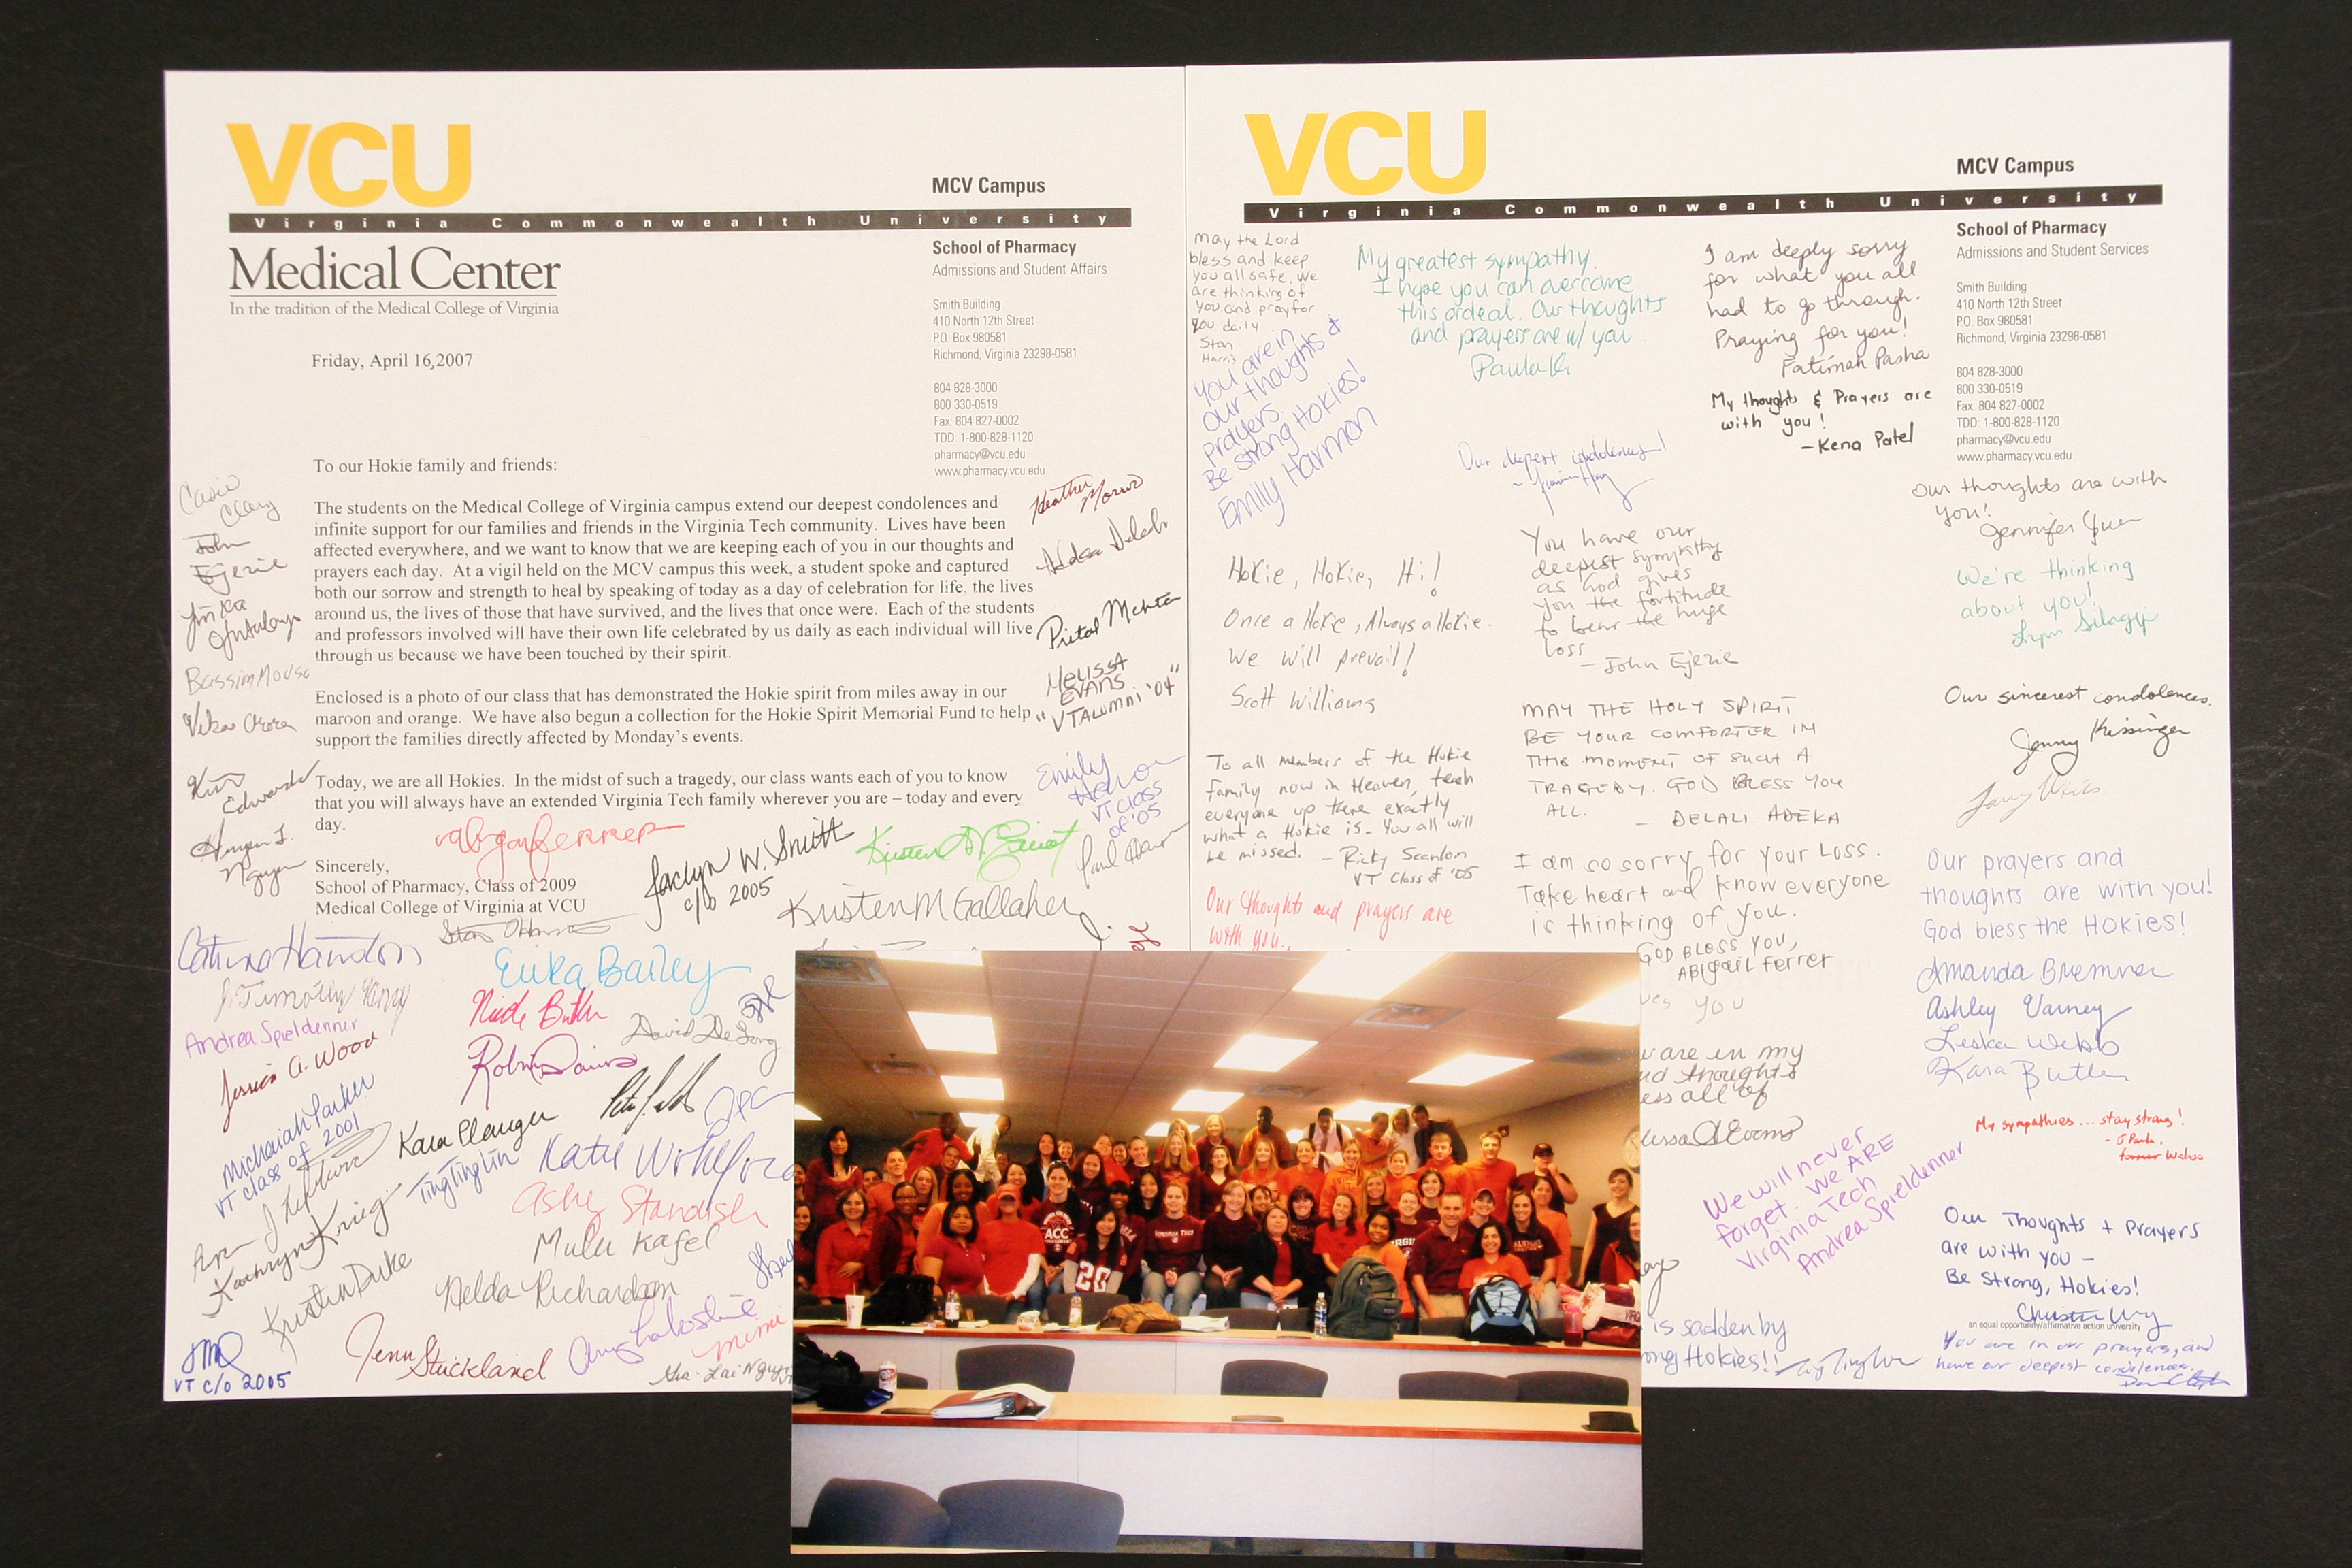 VCU
MCV Campus
Virginia Commonwealth University
Medical Center
In the tradition of the Medical College of Virginia
School of Pharmacy
Admissions and Student Affairs
Smith Building
410 North 12th Street
P.O. Box 980581
Richmond, Virginia 23298-0581
804 828-3000
800 330-0519
Fax: 804 827-0002
TDD: 1-800-828-1120
pharmacy@vcu.edu
www.pharmacy.vcu.edu
Friday, April 16,2007
To our Hokie family and friends:
The students on the Medical College of Virginia campus extend our deepest condolences and
infinite support for our families and friends in the Virginia Tech community. Lives have been
affected everywhere, and we want to know that we are keeping each of you in our thoughts and
prayers each day. At a vigil held on the MCV campus this week, a student spoke and captured
both our sorrow and strength to heal by speaking of today as a day of celebration for life, the lives
around us, the lives of those that have survived, and the lives that once were. Each of the students
and professors involved will have their own life celebrated by us daily as each individual will live
through us because we have been touched by their spirit.
Enclosed is a photo of our class that has demonstrated the Hokie spirit from miles away in our
maroon and orange. We have also begun a collection for the Hokie Spirit Memorial Fund to help
support the families directly affected by Monday's events.
Today, we are all Hokies. In the midst of such a tragedy, our class wants each of you to know
that you will always have an extended Virginia Tech family wherever you are – today and every
day.
Sincerely,
School of Pharmacy, Class of 2009
Medical College of Virginia at VCU
Casie
Clary
John
Ejezie
Bassim
Vikas Arora
Kim
Edwards
Nguyen
Heather
Morris
Melissa
Evans
"VTAlumni '04"
Emily
VT class
of '05
Paul
Abigail Ferrer
Jaclyn W. Smith
c/o 2005
Kristen
Kristen M Gallaher
Catina Hamilton
Stan
J. Timothy
Andrea Spieldenner
Jessica A. Wood
Michaiah Parker
VT class of 2001
Kathryn Krieg
Kristin Duke
VT c/o 2005
Erika Bailey
Nicole Butler
David DeLong
Robin Davis
Kara Plauger
TingTing Lin
Katie Wohlford
Ashy Standish
Mulu Kafel
Nelda Richardson
Amy
Mimi
Jenn Strickland
VCU
MCV Campus
Virginia Commonwealth University
School of Pharmacy
Admissions and Student Services
Smith Building
410 North 12th Street
P.O. Box 980581
Richmond, Virginia 23298-0581
804 828-3000
800 330-0519
Fax: 804 827-0002
TDD: 1-800-828-1120
pharmacy@vcu.edu
www.pharmacy.vcu.edu
May the Lord
bless and keep
you all safe, we
are thinking of
you and pray for
you daily
Stan
Harris
You are in
our thoughts &
prayers.
Be strong Hokies!
Emily Harmon
My greatest sympathy.
I hope you can overcome
this ordeal. Our thoughts
and prayers are w/ you.
Paula
I am deeply sorry
for what you all
had to go through.
Praying for you!
Fatimah Pasha
My thoughts & Prayers are
with you!
-Kena Patel
Our deepest condolences!
Our thoughts are with
you!
Jennifer
Hokie, Hokie, Hi!
Once a Hokie, Always a Hokie.
We will prevail!
Scott Williams
You have our
deepest sympathy
as God gives
you the fortitude
to bear the huge
loss
- John Ejezie
We're thinking
about you!
Lynn
Our sincerest condolences,
Jenny Kissinger
MAY THE HOLY SPIRIT
BE YOUR COMFORTER IN
THIS MOMENT OF SUCH A
TRAGEDY. GOD BLESS YOU
ALL.
- DELALI ADEKA
To all members of the Hokie
family now in Heaven, teach
everyone up there exactly
what a Hokie is. You all will
be missed. - Ricky Scanlon
VT Class of '05
I am so sorry for your Loss.
Take heart and know everyone
is thinking of you.
GOD BLESS YOU,
ABIGAIL FERRER
Our thoughts and prayers are
with you.
Our prayers and
thoughts are with you!
God bless the HOKIES!
Amanda Bremner
Ashley Varney
Leska Webb
Kara Butler
you
are in my
thoughts
all of
Evans
My sympathies... stay strong!
former Wahoo
We will never
forget. We ARE
Virginia Tech
Andrea Spieldenner
Our Thoughts + Prayers
are with you -
Be Strong, Hokies!
an equal opportunity/affirmative action university
is sadden by
Hokies!!
You are in our prayers, and
have our deepest condolences.
ACC
20
VIRGINIA TECH